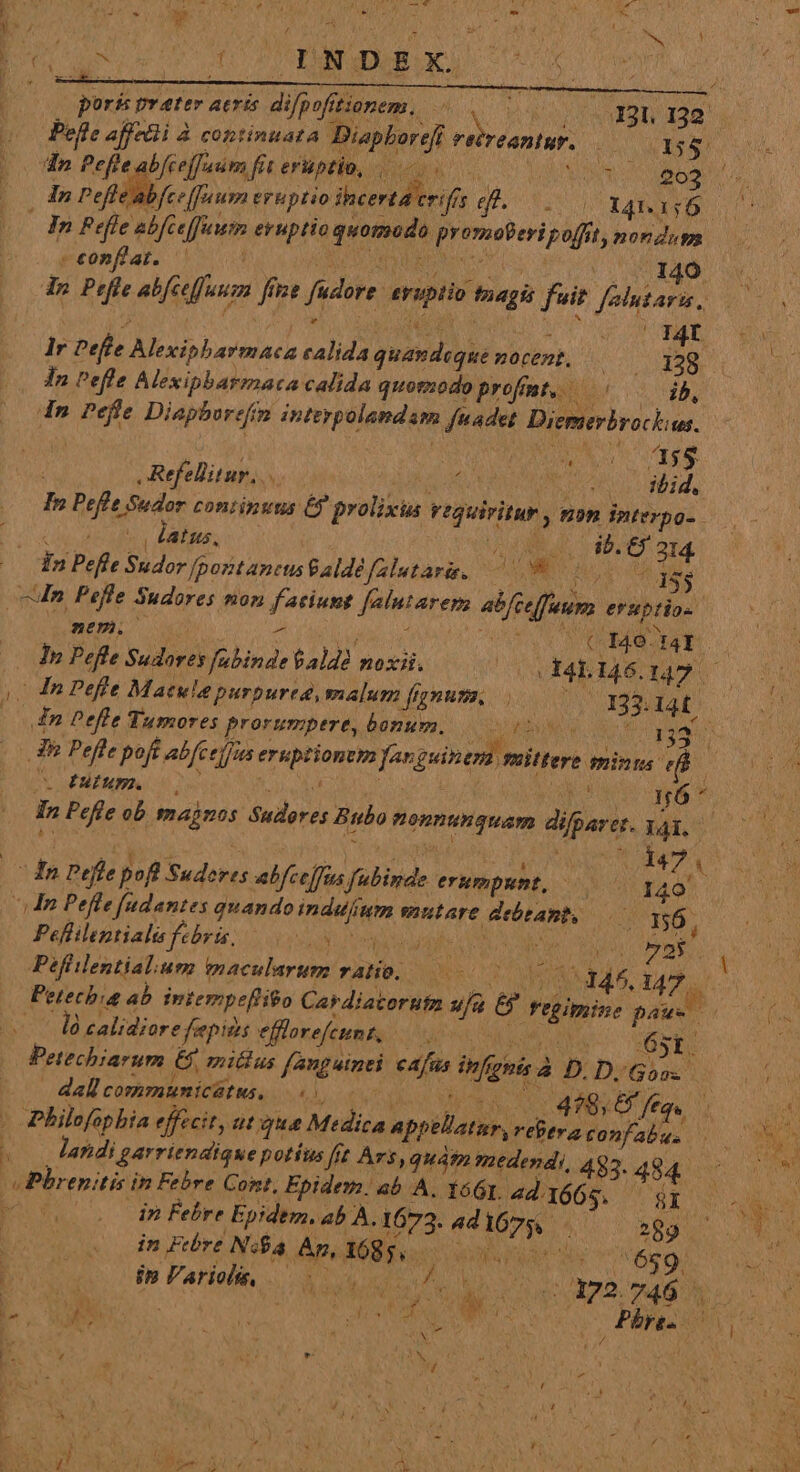 INDEX.
poris præter aeris dispositionem. 131. 132
Peste affecti à continuata Diaphoresi recreantur. 155
In Peste abscessuum fit eruptio, 203
In Peste abscessuum eruptio incerta crisis est. 141. 156
In Peste abscessuum eruptio quomodo promoveri possit, nondum
constat. 140
In Peste abscessuum sine sudore eruptio magis fuit salutaris.
141
In Peste Alexipharmaca calida quandoque nocent. 138
In Peste Alexipharmaca calida quomodo prosint. ib,
In Peste Diaphoresin interpolandam suadet Diemerbrockius.
155
Refellitur. ibid,
In Peste Sudor continuus & prolixius requiritur, non interpo-
latus. ib. & 314
In Peste Sudor spontaneus valdè salutaris. 155
In Peste Sudores non faciunt salutarem abscessuum eruptio-
nem. 140. 141
In Peste Sudores subinde valdè noxii. 141. 146. 147
In Peste Maculæ purpureæ, malum signum, 133. 141
In Peste Tumores prorumpere, bonum. 133
In Peste post abscessus eruptionem sanguinem mittere minus est
tutum. 156
In Peste ob magnos Sudores Bubo nonnunquam disparet. 141.
147
In Peste post Sudores abscessus subinde erumpunt. 140
In Peste sudantes quando indusium mutare debeant, 156
Pestilentialis febris. 725
Pestilentialium macularum ratio. 146, 147
Petechiæ ab intempestivo Cardiacorum usu & regimine pau-
lò calidiore sæpiùs efflorescunt, 651
Petechiarum & mictus sanguinei casus insignis à D. D. Goo-
dall communicatus. 478, & seq.
Philosophia effecit, ut quæ Medica appellatur, revera confabu-
landi garriendique potius sit Ars, quàm medendi. 483. 484
Phrenitis in Febre Cont. Epidem. ab A. 1661. ad 1665. 81
in Febre Epidem. ab A. 1673. ad 1675. 289
in Febre Nova An, 1685. 659.
in Variolis. 172. 746
Phre-